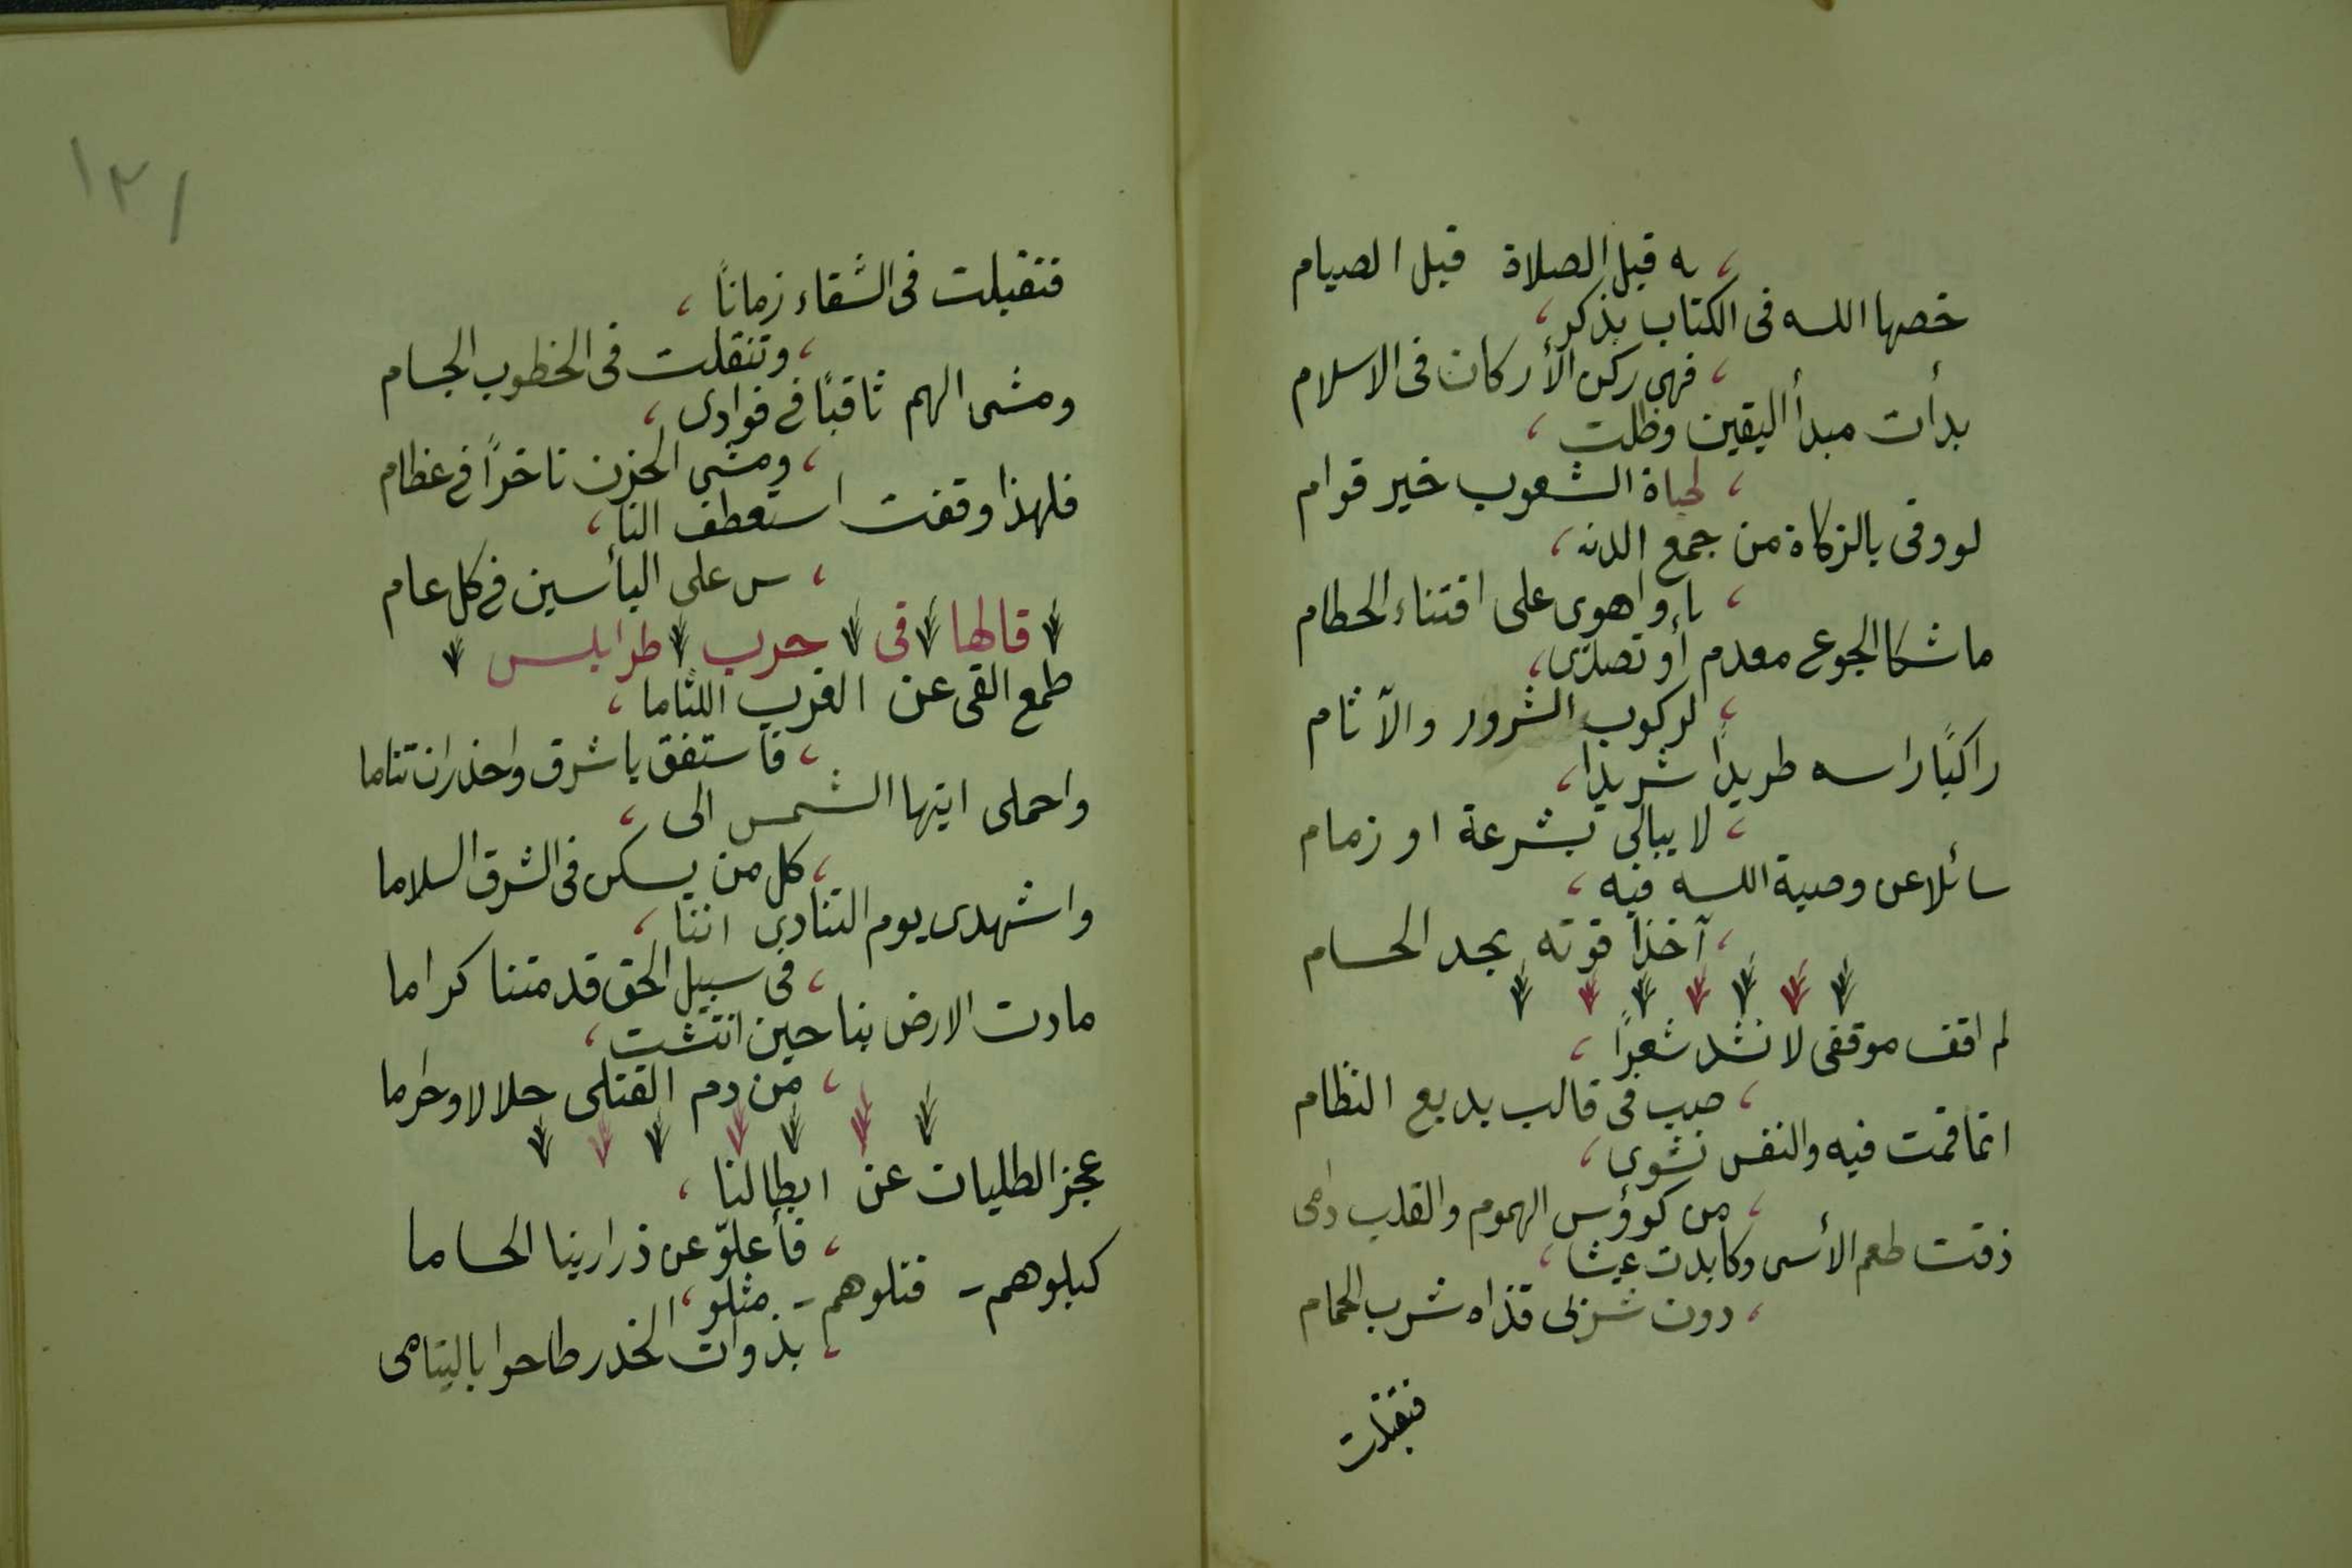 ه قبل الصلاة قبل الصيام
خصها الله فى الكتاب بذكر،
، فهى ركن الأركان فى الاسلام
بدأت مبدأ اليقين وظلت،
، لحياة الشعوب خير قوام
لووفى بالزكاة من جمع الدنـ،
، يا واهوى على اقتناء الحطام
ما شكا الجوع معدم أو تصدّى،
، لركوب الشرور والآثام
راكبًا راسه طريدًا شريدًا،
، لا يبالى بشرعة او زمام
سائلا عن وصية الله فيه،
، آخذًا قوته بحد الحسام
لم اقف موقفى لانشد شعرًا،
، صب فى قالب بديع النظام
انما قمت فيه والنفس نشوى،
، من كوؤس الهموم والقلب دامى
ذقت طعم الأسى وكابدت عيشا،
، دون شربى قذاه شرب الحمام
فتقبلت
١٢١
فتقبلت فى الشقاء زمانًا،
، وتنقلت فى الخطوب الجسام
ومشى الهم ثاقبًا فى فوادى،
، ومشى الحزن ناخرًا فى عظام
فلهذا وقفت استعطف النا،
، س على البأسين فى كل عام
قالها فى حرب طرابلس
طمع القى عن الغرب اللثاما،
، فاستفق يا شرق واحذر ان تناما
واحملى ايتها الشمس الى،
، كل من يسكن فى الشرق السلاما
واشهدى يوم التنادى اننا،
، فى سبيل الحق قد متنا كراما
مادت الارض بنا حين انتشت،
، من دم القتلى حلالا وحراما
عجز الطليان عن ابطالنا،
، فأعلوّ عن ذرارينا الحساما
كبلوهم - قتلوهم - مثلو،
، بذوات الخدر طاحوا باليتامى